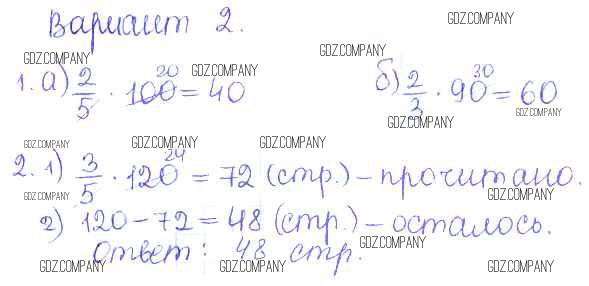 Вариант 2.
GDZ.COMPANY
GDZ.COMPANY GDZ.COMPANY
1. а) 2/5 · 100 20 = 40 GDZ.COMPANY б) 2/3 · 90 30 = 60
GDZ.COMPANY GDZ.COMPANY
GDZ.COMPANY GDZ.COMPANY GDZ.COMPANY
2. 1) 3/5 · 120 24 = 72 (стр.) – прочитано.
GDZ.COMPANY GDZ.COMPANY
2) 120 – 72 = 48 (стр.) – осталось.
GDZ.COMPANY
Ответ: 48 стр.
GDZ.COMPANY GDZ.COMPANY GDZ.COMPANY